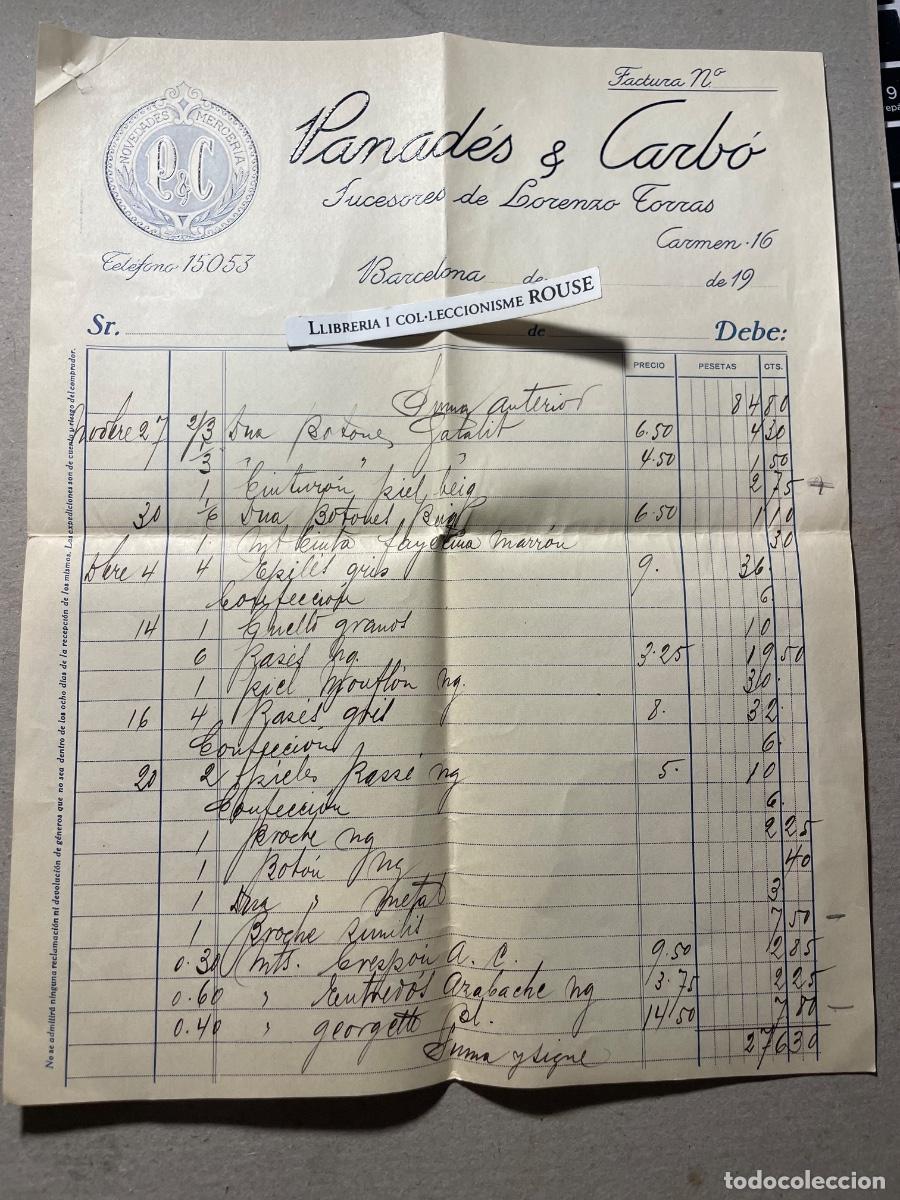 Factura Nº
NOVEDADES MERCERIA
P&C
Panadés & Carbó
Sucesores de Lorenzo Torras
Carmen·16
Teléfono 15053
Barcelona de de 19
LLIBRERIA I COL·LECCIONISME ROUSE
Sr. de Debe:
PRECIO PESETAS CTS.
Suma anterior 84 80
Nobre 27 2/3 Dna Botones Galalit 6.50 4 30
1/3 " " " 4.50 1 50
1 Cinturón piel beig 2 75
30 1/6 Dna Botones Beig 6.50 1 10
1 mt Cinta marrón 30
Dbre 4 4 gris 9. 36.
Confección 6.
14 1 Cuello granos 10
6 Rases ng. 3.25 19 50
1 piel Mouflón ng. 30.
16 4 Rases gris 8. 32.
Confección 6.
20 2 pieles Rassé ng 5. 10
Confección 6.
1 Broche ng 2 25
1 Botón ng 40
1 Dna " metal 3
1 Broche Similis 7 50
0.30 mts. Crespón A. C. 9.50 2 85
0.60 " Entredós Azabache ng 13.75 2 25
0.40 " georgette Col. 14'50 7 80
Suma y sigue 276 30
No se admitirá ninguna reclamación ni devolución de géneros que no sea dentro de los ocho días de la recepción de los mismos. Las expediciones son de cuenta y riesgo del comprador.
9
todocoleccion